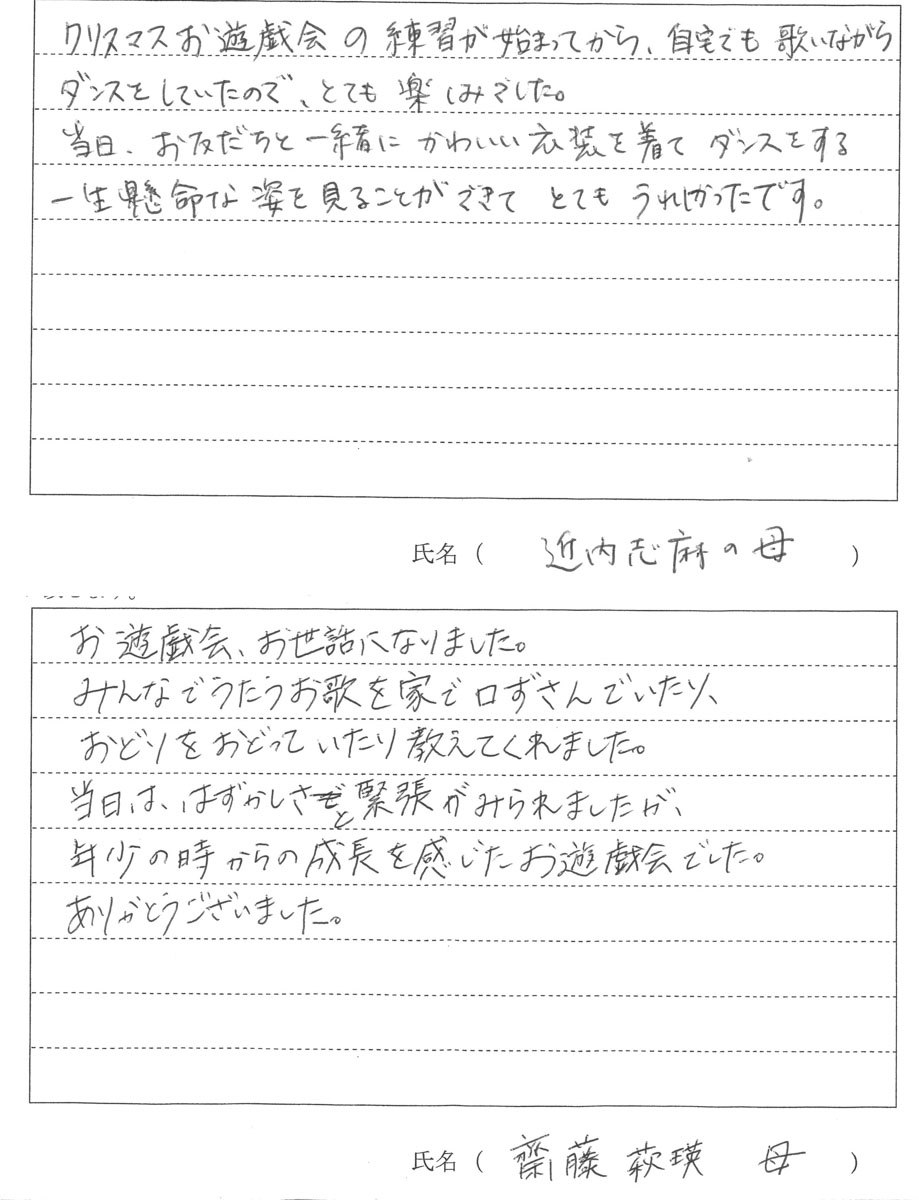 クリスマスお遊戯会の練習が始まってから、自宅でも歌いながら
ダンスをしていたので、とても楽しみでした。
当日、お友だちと一緒にかわいい衣装を着てダンスをする
一生懸命な姿を見ることができてとてもうれしかったです。
氏名（近内志麻の母）
お遊戯会、お世話になりました。
みんなでうたうお歌を家で口ずさんでいたり、
おどりをおどっていたり教えてくれました。
当日は、はずかしさと緊張がみられましたが、
年少の時からの成長を感じたお遊戯会でした。
ありがとうございました。
氏名（齋藤萩瑛 母）